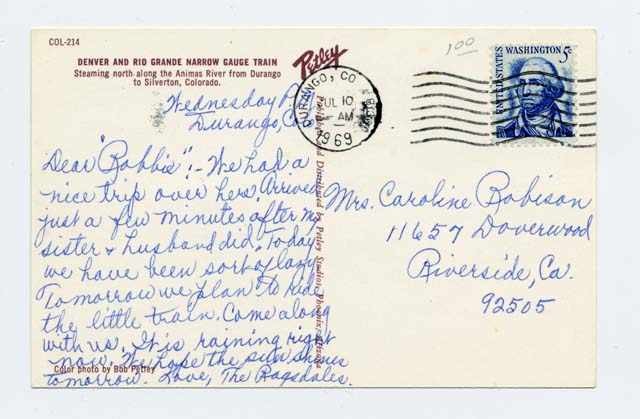 COL-214
DENVER AND RIO GRANDE NARROW GAUGE TRAIN
Steaming north along the Animas River from Durango
to Silverton, Colorado.
Petley
1.00
DURANGO, CO
JUL 10
AM
1969
UNITED STATES
WASHINGTON 5c
Wednesday P.M.
Durango, Co
Dear "Robbie":- We had a
nice trip over here. Arrived
just a few minutes after my
sister & husband did. Today
we have been sort of lazy
Tomorrow we plan to ride
the little train. Come along
with us. It is raining right
now. We hope the sun shines
tomorrow. Love, The Ragsdales.
Color photo by Bob Petley
and Distributed by Petley Studios, Phoenix, Arizona
Mrs. Caroline Robison
11657 Doverwood
Riverside, Ca.
92505